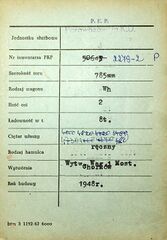 P. K. P.
Jednostka służbowa
Nr inwentarza PKP 50645 2279-2 P
Szerokość toru 785mm
Rodzaj wagonu Wh
Ilość osi 2
Ładowność w t. 8t.
Ciężar własny
Rodzaj hamulca ręczny
Wytwórnia Wytw. Wag. i Most. Chorzów
Rok budowy 1948r.